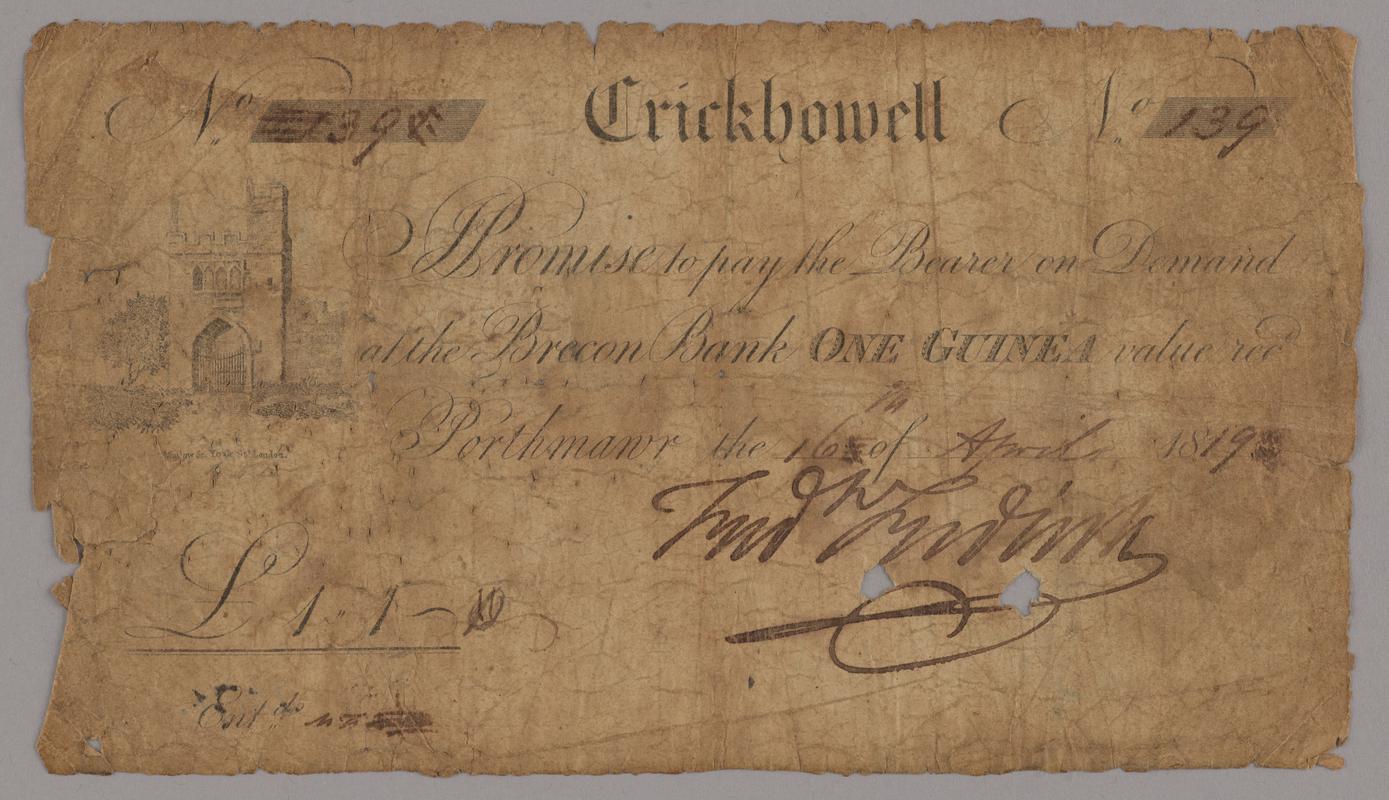 No 139 Crickhowell No 139
I Promise to pay the Bearer on Demand
at the Brecon Bank ONE GUINEA value recd
Porthmawr the 16th of April 1819
York St. London.
£ 1 " 1 —
Entd